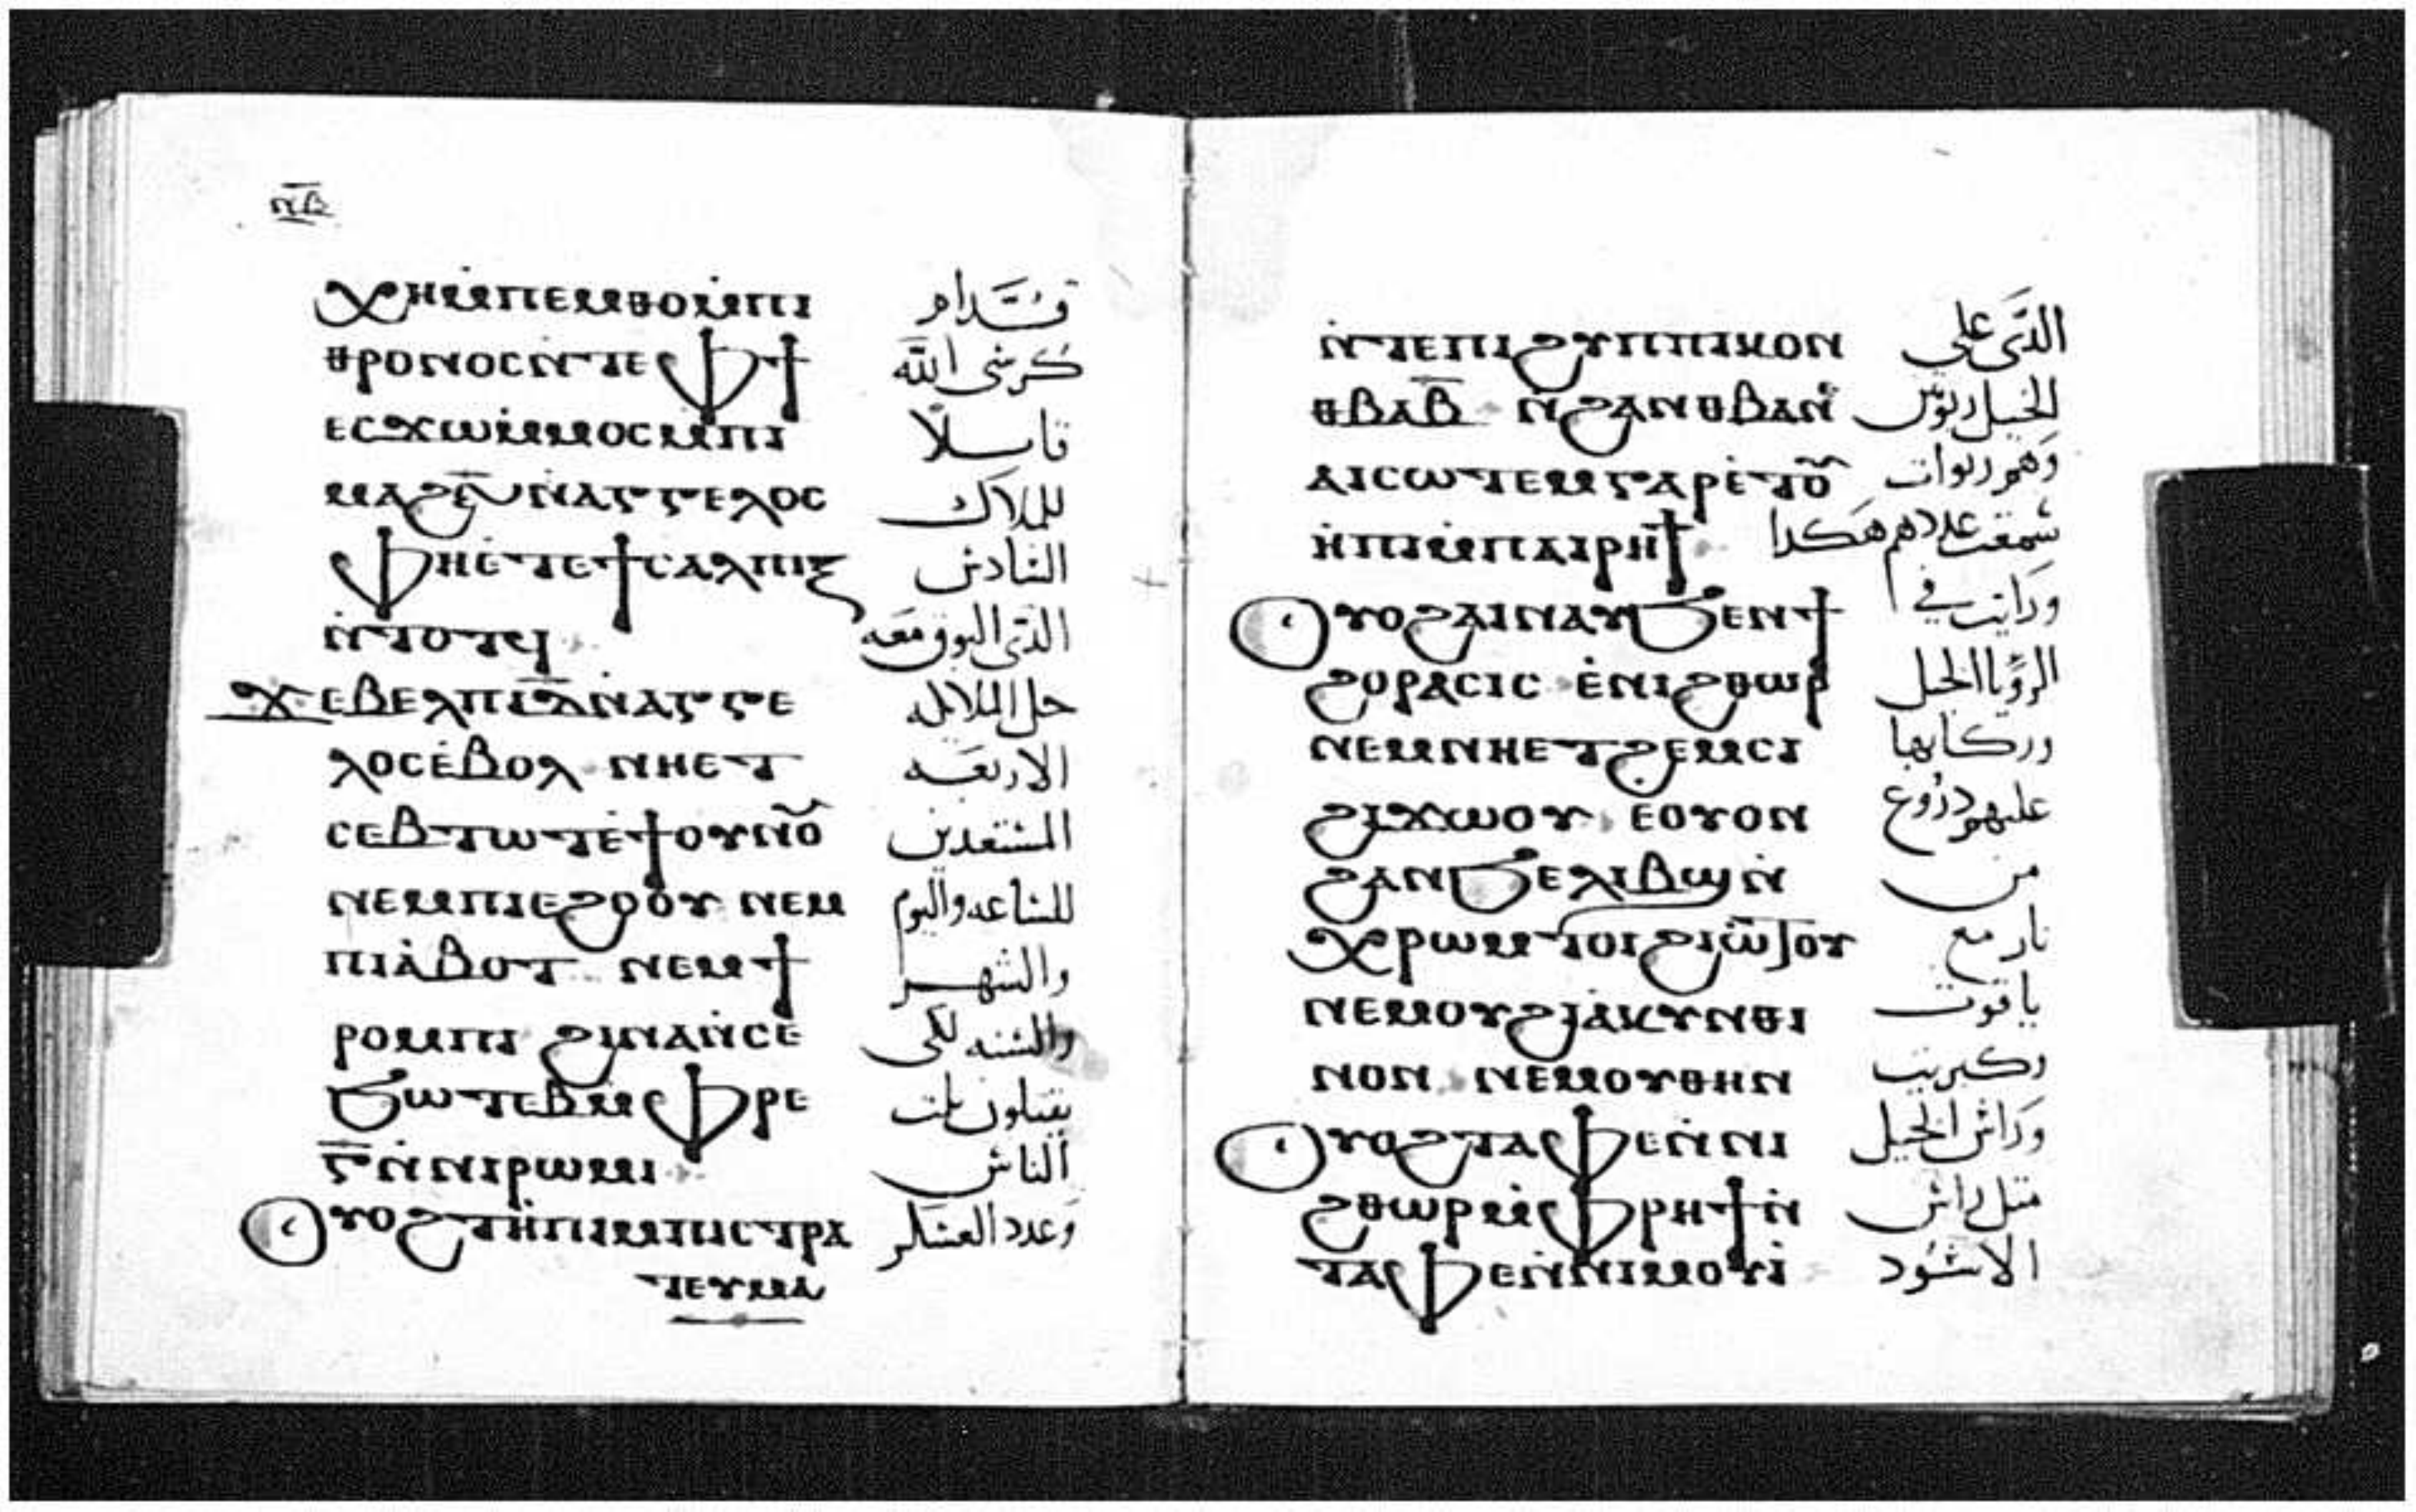 ⲛ̅ⲃ̅
ⲭⲏ ⲙ̇ⲡⲉⲙⲑⲟ ⲙ̇ⲡⲓ قدام
ⲑⲣⲟⲛⲟⲥ ⲛ̇ⲧⲉ ⲫϯ كرسى الله
ⲉⲥϫⲱ ⲙ̇ⲙⲟⲥ ⲙ̇ⲡⲓ قايلا
ⲙⲁϩⲋ̅ ⲛ̇ⲁⲅⲅⲉⲗⲟⲥ للملاك
ⲫⲏ ⲉ̇ⲧⲉ ϯⲥⲁⲗⲡⲓⲅⲝ السادس
ⲛ̇ⲧⲟⲧϥ الذى البوق معه
ϫⲉ ⲃⲉⲗ ⲡⲓⲇ̅ ⲛ̇ⲁⲅⲅⲉ حل الملايكه
ⲗⲟⲥ ⲉ̇ⲃⲟⲗ ⲛⲏⲉⲧ الاربعه
ⲥⲉⲃⲧⲱⲧ ⲉ̇ϯⲟⲩⲛⲟ̅ⲩ المستعدين
ⲛⲉⲙ ⲡⲓⲉϩⲟⲟⲩ ⲛⲉⲙ للساعه واليوم
ⲡⲓⲁ̇ⲃⲟⲧ ⲛⲉⲙ ϯ والشهر
ⲣⲟⲙⲡⲓ ϩⲓⲛⲁ ⲛ̇ⲥⲉ والسنه لكى
ϧⲱⲧⲉⲃ ⲙ̇ⲫⲣⲉ يقتلون تلت
ⲅ̅ ⲛ̇ⲛⲓⲣⲱⲙⲓ الناس
ⲟⲩⲟϩ ⲧⲏⲡⲓ ⲙ̇ⲡⲓⲥⲧⲣⲁ وعدد العسكر
ⲧⲉⲩⲙⲁ
ⲛ̇ⲧⲉ ⲡⲓϩⲩⲡⲡⲓⲕⲟⲛ الذى على
ⲑⲃⲁ ⲃ̅ ⲛ̇ϩⲁⲛⲑⲃⲁ ⲛ̇ الخيل ربوتين
ⲁⲓⲥⲱⲧⲉⲙ ⲅⲁⲣ ⲉ̇ⲧⲟ̅ⲩ وهم ربوات
ⲏⲡⲓ ⲙ̇ⲡⲁⲓⲣⲏϯ سمعت عددهم هكدا
ⲟⲩⲟϩ ⲁⲓⲛⲁⲩ ϧⲉⲛ ϯ ورايت فى
ϩⲟⲣⲁⲥⲓⲥ ⲉ̇ⲛⲓϩⲑⲱⲣ الرويا الخيل
ⲛⲉⲙ ⲛⲏⲉⲧϩⲉⲙⲥⲓ وركابها
ϩⲓϫⲱⲟⲩ ⲉⲟⲩⲟⲛ عليهم دروع
ϩⲁⲛϧⲉⲗⲓⲃϣ ⲛ̇ من
ⲭⲣⲱⲙ ⲧⲟⲓ ϩⲓⲱⲧⲟⲩ نار مع
ⲛⲉⲙ ⲟⲩϩⲓⲁ̇ⲕⲩⲛⲑⲓ ياقوت
ⲛⲟⲛ ⲛⲉⲙ ⲟⲩⲑⲏⲛ وكبريت
ⲟⲩⲟϩ ⲧⲁⲫⲉ ⲛ̇ⲛⲓ وراس الخيل
ϩⲑⲱⲣ ⲙ̇ⲫⲣⲏϯ ⲛ̇ متل راس
ⲧⲁⲫⲉ ⲛ̇ⲛⲓⲙⲟⲩⲓ̇ الاسود